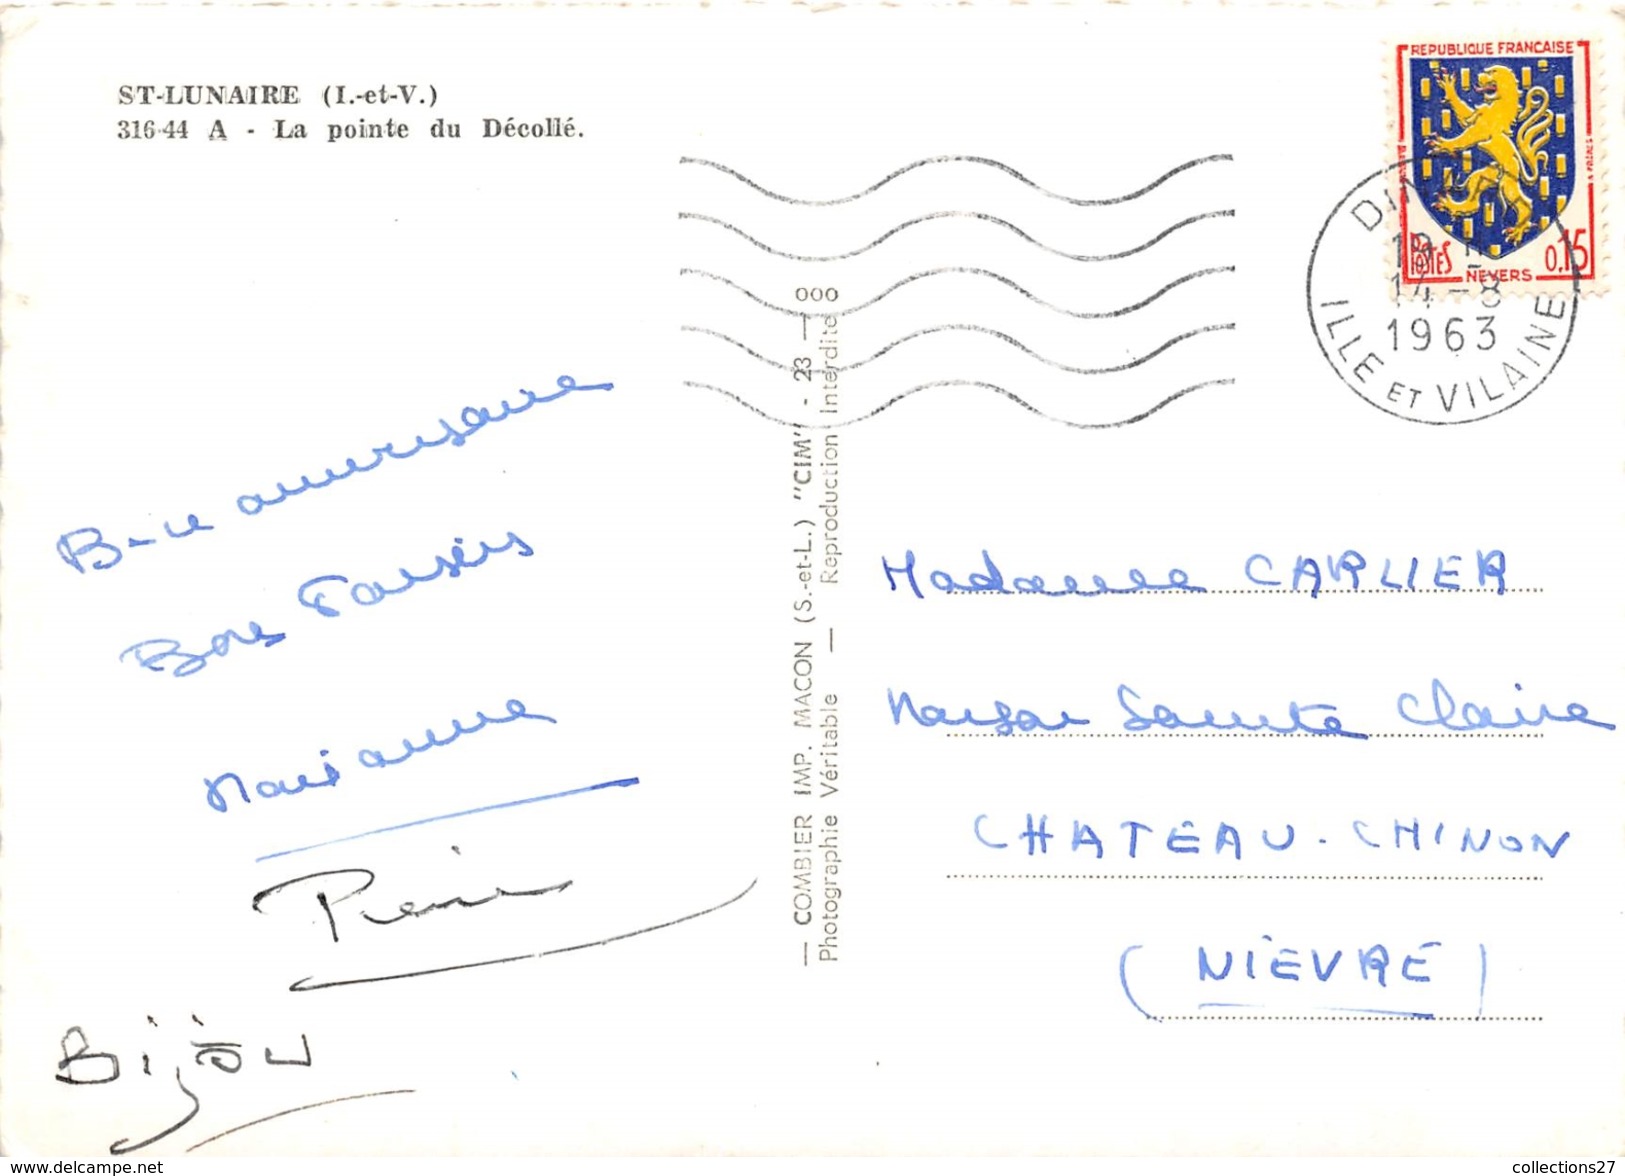 ST-LUNAIRE (I.-et-V.)
316-44 A - La pointe du Décollé.
Bonne anniversaire
Bons Baisers
Marianne
Pierre
Bijou
— COMBIER IMP. MACON (S.-et-L.) "CIM" - 23 — 000
Photographie Véritable — Reproduction Interdite
REPUBLIQUE FRANÇAISE
POSTES
NEVERS
0,15
DINARD
14 - 8
1963
ILLE ET VILAINE
Madame CARLIER
Maison Sainte Claire
CHATEAU-CHINON
(NIÈVRE)
collections27